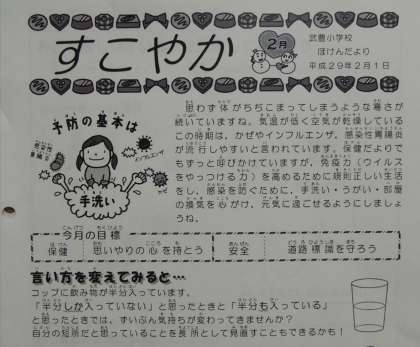 すこやか
2月
武豊小学校
ほけんだより
平成29年2月1日
思わず体がちぢこまってしまうような寒さが
続いていますね。気温が低く空気が乾燥している
この時期は、かぜやインフルエンザ、感染性胃腸炎
が流行しやすいと言われています。保健だよりで
もずっと呼びかけていますが、免疫力(ウイルス
をやっつける力)を高めるために規則正しい生活
をし、感染を防ぐために、手洗い・うがい・部屋
の換気を心がけ、元気に過ごせるようにしましょ
うね。
予防の基本は
感染性
胃腸炎
インフルエンザ
かぜ
手洗い
今月の目標
保健 思いやりの心を持とう 安全 道路標識を守ろう
言い方を変えてみると…
コップに飲み物が半分入っています。
「半分しか入っていない」と思ったときと「半分も入っている」
と思ったときでは、ずいぶん気持ちが変わってきませんか?
自分の短所だと思っていることを長所として見直すこともできるかも!